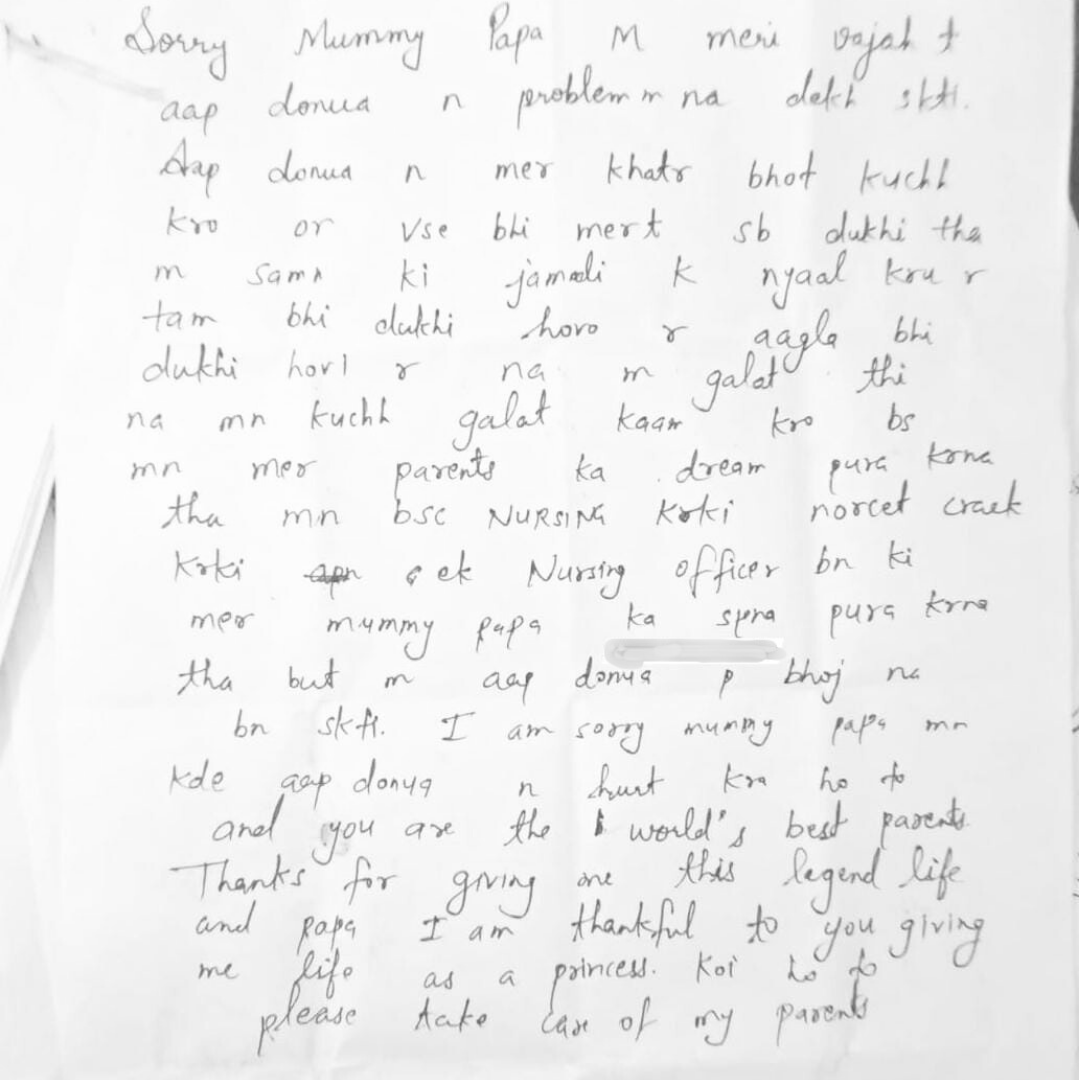 Sorry Mummy Papa M meri vajah t
aap donua n problem m na dekh skti.
Aap donua n mer khatr bhot kuchh
kro or vse bhi mert sb dukhi tha
m sama ki jamali k nyaal kru r
tam bhi dukhi horo r aagla bhi
dukhi horl r na m galat thi
na mn kuchh galat kaam kro bs
mn mer parents ka dream pura krna
tha mn bsc NURSING krki norcet crack
krki ek Nursing officer bn ki
mer mummy papa ka spna pura krna
tha but m aap donya p bhoj na
bn skti. I am sorry mummy papa mn
kde aap donya n hurt kra ho to
and you are the world's best parents
Thanks for giving me this legend life
and papa I am thankful to you giving
me life as a princess. Koi ho to
please take care of my parents